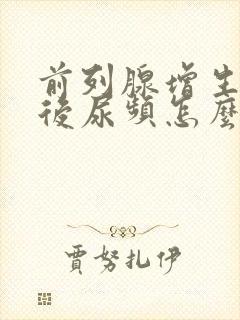 前列腺增生
後尿頻怎麼
賈努扎伊